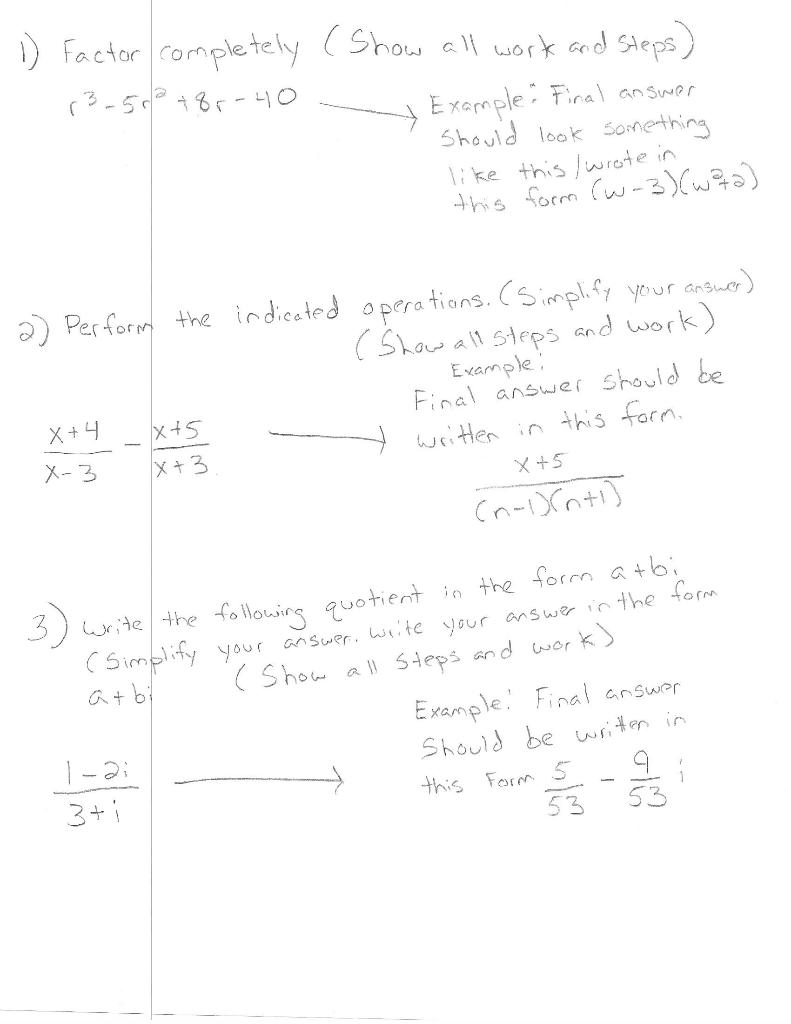 1) Factor completely (Show all work and steps)
r³-5r²+8r-40 → Example: Final answer
Should look something
like this/wrote in
this form (w-3)(w²+2)
2) Perform the indicated operations. (Simplify your answer)
(Show all steps and work)
Example:
Final answer should be
written in this form.
x+4 / x-3 - x+5 / x+3 →
x+5
(n-1)(n+1)
3) Write the following quotient in the form a+bi
(Simplify your answer. Write your answer in the form
a+bi (Show all steps and work)
Example: Final answer
Should be written in
this Form 5/53 - 9/53 i
1-2i / 3+i →